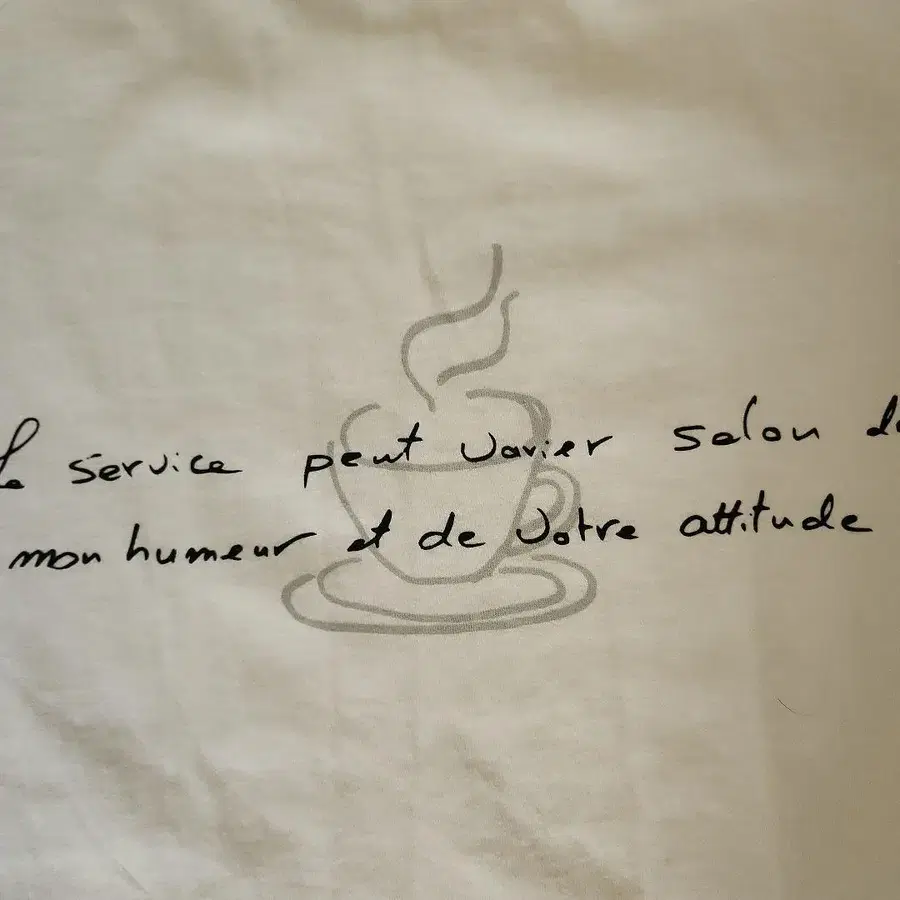 Le service peut varier selon de
mon humeur et de votre attitude